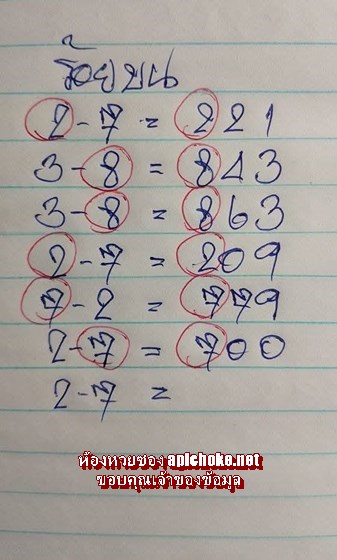 ร้อยบน
2-7 = 221
3-8 = 843
3-8 = 863
2-7 = 209
7-2 = 779
2-7 = 700
2-7 =
ห้องหวยซอง apichoke.net
ขอบคุณเจ้าของข้อมูล